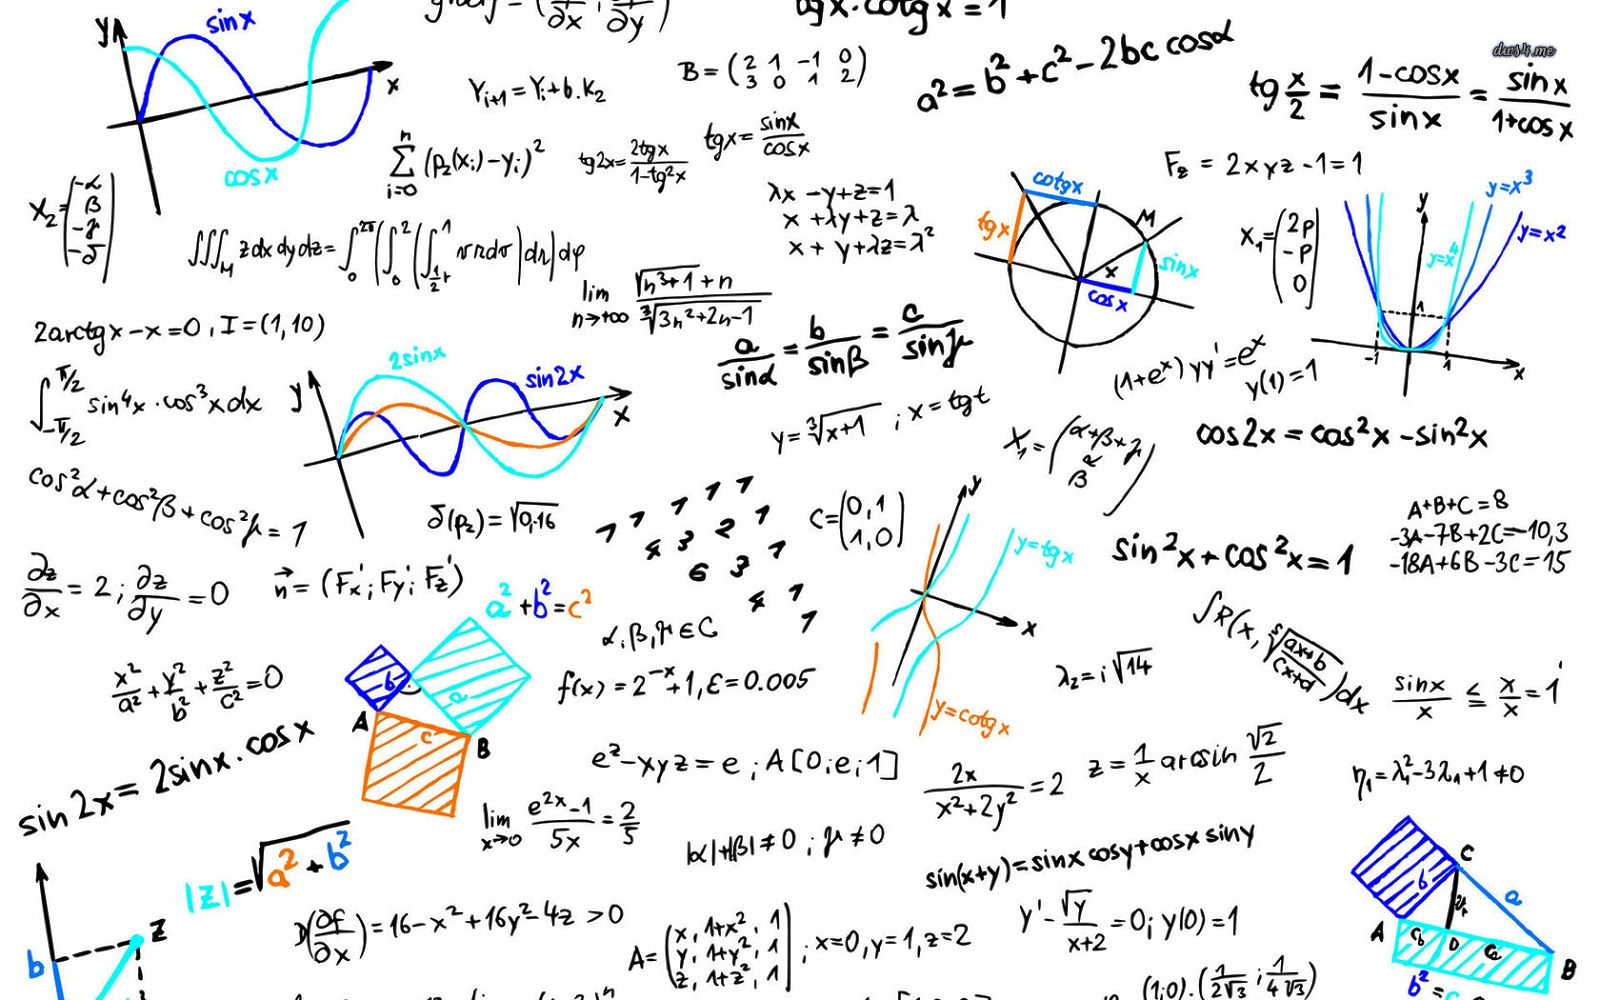 y
sin x
x
cos x
tgx.cotgx = 1
Yᵢ₊₁ = Yᵢ + b.K₂
B = (2 1 -1 0
3 0 1 2)
a² = b² + c² - 2bc cosα
dars4.me
tg x/2 = 1-cosx/sinx = sinx/1+cosx
∑ⁿᵢ₌₀ (p₂(xᵢ) - yᵢ)²
tg2x = 2tgx/1-tg²x
tgx = sinx/cosx
F_z = 2xyz - 1 = 1
X₂ = (-α
β
-γ
-δ)
λx - y + z = 1
x + λy + z = λ
x + y + λz = λ²
cotgx
tgx
M
sinx
x
cosx
X₁ = (2p
-p
0)
y
y=x³
y=x²
y=x⁴
1
-1
1
x
lim n→+∞ √n³+1 + n / ∛3n²+2n-1
2arctgx - x = 0, I = (1,10)
a/sinα = b/sinβ = c/sinγ
(1+eˣ) yy' = eˣ
y(1) = 1
∫ π/2 -π/2 sin⁴x·cos³x dx
y
2sinx
sin2x
x
y = ∛x+1 ; x = tgt
X₁ = (α+β+γ
α
β)
cos2x = cos²x - sin²x
cos²α + cos²β + cos²γ = 1
δ(p₂) = √0,16
1 1 1 1 1
4 3 2 1
6 3 1
4 1
1
C = (0,1
1,0)
y
y=tgx
x
y=cotgx
sin²x + cos²x = 1
A+B+C=8
-3A-7B+2C=-10,3
-18A+6B-3C=15
∂z/∂x = 2; ∂z/∂y = 0
n⃗ = (Fx'; Fy'; Fz')
a² + b² = c²
α, β, γ ∈ C
∫R(x, ⁵√ax+b/cx+d)dx
x²/a² + y²/b² + z²/c² = 0
b
a
A
c
B
f(x) = 2⁻ˣ+1, ε = 0.005
λ₂ = i√14
sinx/x ≤ x/x = 1
sin2x = 2sinx·cosx
e² - xyz = e ; A[0;e;1]
2x/x²+2y² = 2
z = 1/x arcsin √2/2
η₁ = λ₁² - 3λ₁ + 1 ≠ 0
lim x→0 e²ˣ-1/5x = 2/5
|α|+|β| ≠ 0 ; γ ≠ 0
sin(x+y) = sinx cosy + cosx siny
|z| = √a² + b²
b
z
(∂f/∂x) = 16 - x² + 16y² - 4z > 0
A = (x, 1+x², 1
y, 1+y², 1
z, 1+z², 1) ; x=0, y=1, z=2
y' - √y/x+2 = 0; y(0) = 1
C
b
a
A
D
B
b² =
(1;0).(1/2√3 ; 1/4√3)